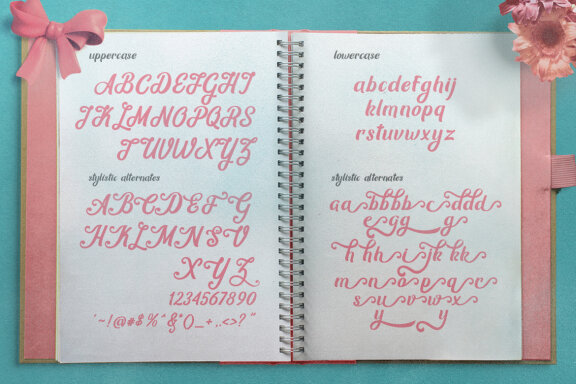 uppercase
ABCDEFGHI
JKLMNOPQRS
TUVWXYZ
stylistic alternates
ABCDEFG
HKLMNSV
XYZ
1234567890
'~!@#$%^&*()_+..<>?"
lowercase
abcdefghij
klmnopq
rstuvwxyz
stylistic alternates
aabbbbcddd
eggg
hhhijkkk
mnopqr
suvwx
yy